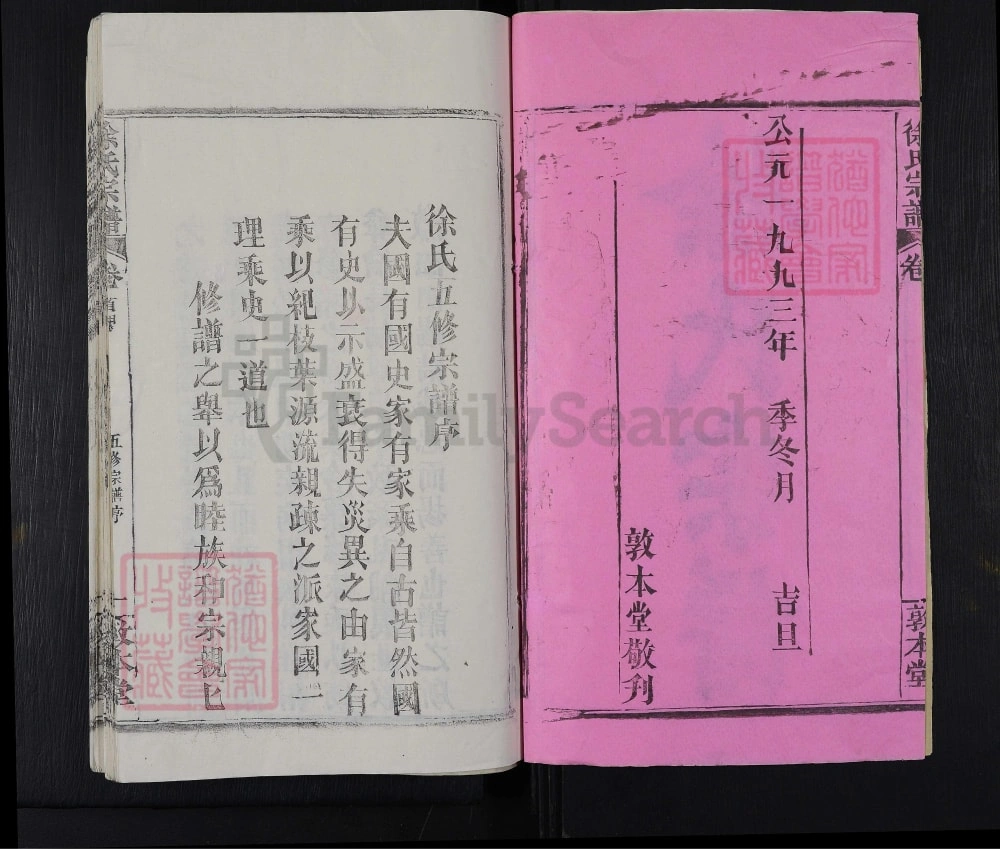 徐氏宗譜
卷
敦本堂
公元一九九三年 季冬月 吉旦
敦本堂敬刋
徐氏五修宗譜序
夫國有國史家有家乘自古皆然國
有史以示盛衰得失災異之由家有
乘以紀枝葉源流親疎之派家國一
理乘史一道也
修譜之舉以爲睦族和宗親也
徐氏宗譜
卷首
五修宗譜序
一
敦本堂
FamilySearch